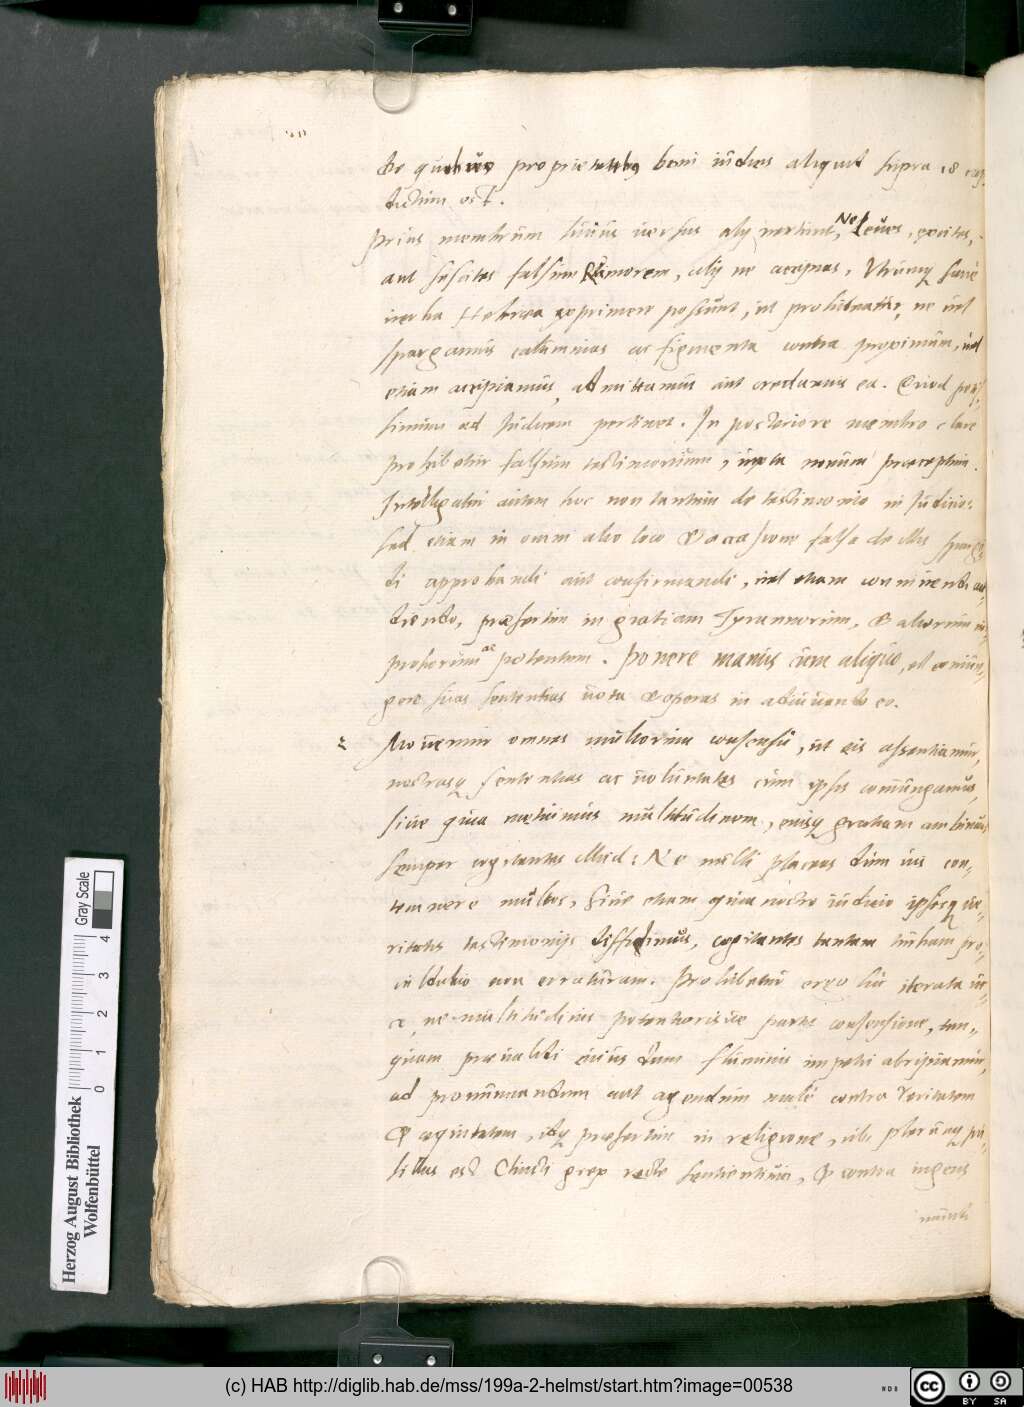 De quibus proprietatibus boni iudicis aliquid supra 18 cap.
dictum est.
Prius membrum huius versus alij vertunt, Ne leves, excites,
aut suscites falsum Rumorem, alij ne accipias. Utrumq; sane
verba Hebraea exprimere possunt, ut prohibeatur, ne vel
spargamus calumnias ac figmenta contra proximum, vel
etiam accipiamus, admittamus aut credamus ea. Quod potis-
simum ad Iudicem pertinet. In posteriore membro clare
prohibetur falsum testimonium, iuxta nonum praeceptum.
Intelligatur autem hoc non tantum de testimonio in Iudicio:
sed etiam in omni alio loco & occasione falsa de illis
di approbandi aut confirmandi, vel etiam connivendi au-
diendo, praesertim in gratiam Tyrannorum, & aliorum im-
proborum ac potentum. Ponere manus cum aliquo, est coniun-
gere suas sententias vota & operas in adiuvando eo.
2 Movemur omnes multorum consensu, ut eis assentiamur,
nostrasq; sententias ac voluntates cum ipsis coniungamus,
sive quia metuimus multitudinem, eiusq; gratiam ambimus
semper cogitantes illud: Ne nulli placeas dum vis con-
temnere multos, Sive etiam quia nostro iudicio ipsisq; ve-
ritatis testimonijs diffidimus, cogitantes tantam turbam pro-
cul dubio non erraturam. Prohibetur ergo hic iterata vi-
ce, ne multitudinis potentiorisve partis consensione, tan-
quam praevalidi cuius dum fluminis impetu abripiamur,
ad pronunciandum aut agendum male contra Veritatem
& aequitatem, idq; praesertim in religione, ubi plerunq; pu-
sillus est Christi grex recte sentientium, & contra ingens
mundi
Herzog August Bibliothek
Wolfenbüttel
Gray Scale
0 1 2 3 4
(c) HAB http://diglib.hab.de/mss/199a-2-helmst/start.htm?image=00538
cc BY SA